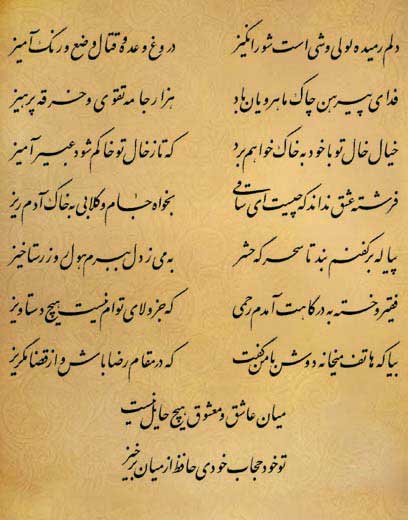 دلم رمیدهٔ لولی وشی است شورانگیز
دروغ وعده و قتال وضع و رنگ آمیز
فدای پیرهن چاک ماهرویان باد
هزار جامه تقوی و خرقه پرهیز
خیال خال تو با خود به خاک خواهم برد
که تا ز خال تو خاکم شود عبیرآمیز
فرشته عشق نداند که چیست ای ساقی
بخواه جام و گلابی به خاک آدم ریز
پیاله بر کفنم بند تا سحرگه حشر
به می ز دل ببرم هول روز رستاخیز
فقیر و خسته به درگاهت آمدم رحمی
که جز ولای توام نیست هیچ دستاویز
بیا که هاتف میخانه دوش با من گفت
که در مقام رضا باش و از قضا مگریز
میان عاشق و معشوق هیچ حایل نیست
تو خود حجاب خودی حافظ از میان برخیز